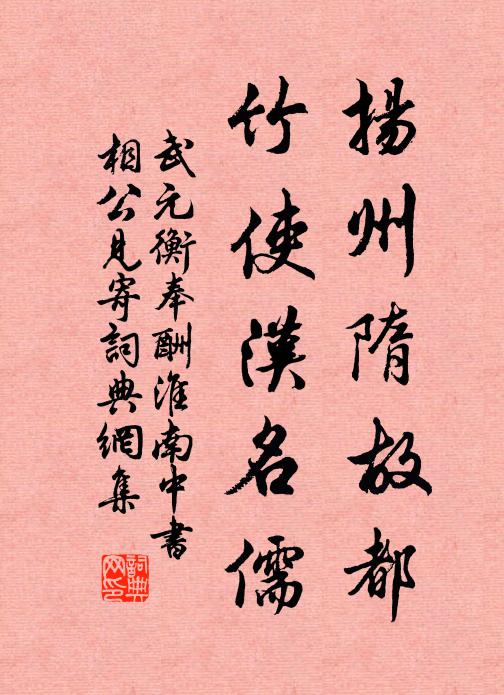 揚州隋故都
竹使漢名儒
武元衡奉酬淮南中書
相公見寄詞典網集
詞典网印